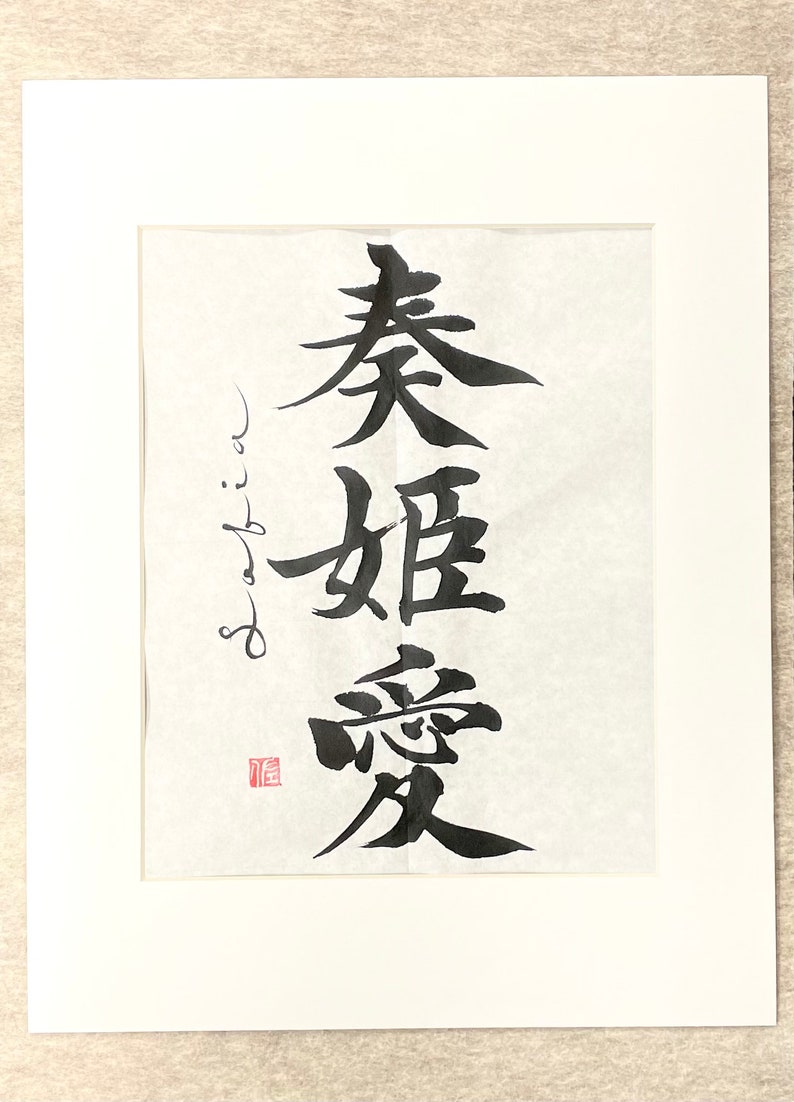 奏姫愛
Sofia
佐